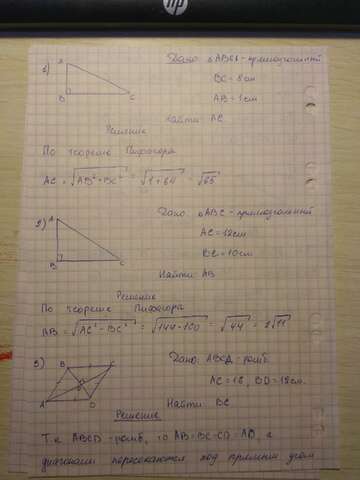 hp
1)
A
B
C
Дано: △ABC - прямоугольный
BC = 8см
AB = 1см
Найти: AC
Решение
По теореме Пифагора
AC = √AB² + BC² = √1+64 = √65
2)
A
B
C
Дано: △ABC - прямоугольный
AC = 12см
BC = 10см
Найти: AB
Решение
По теореме Пифагора
AB = √AC² - BC² = √144-100 = √44 = 2√11
3)
B
C
A
D
Дано: ABCD - ромб
AC = 16, BD = 12см.
Найти: BC
Решение
Т.к ABCD - ромб, то AB=BC=CD=AD, а
диагонали пересекаются под прямым углом